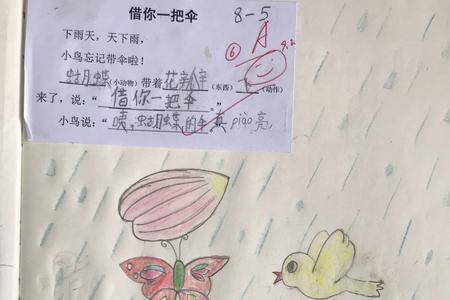 借你一把伞
8-5
A
⑥
9.2
下雨天，天下雨，
小鸟忘记带伞啦！
蝴蝶（小动物）带着花瓣伞（东西）飞（动作）
来了，说：“借你一把伞。”
小鸟说：“咦，蝴蝶的伞真piào亮